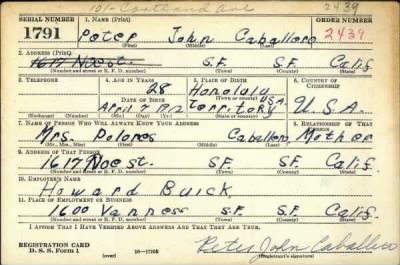 101- Cortland Ave 2439
SERIAL NUMBER 1. NAME (Print) ORDER NUMBER
1791 Peter John Caballero 2439
(First) (Middle) (Last)
2. ADDRESS (Print)
1617 Noe st. S.F. S.F. Calif
(Number and street or R. F. D. number) (Town) (County) (State)
3. TELEPHONE 4. AGE IN YEARS 5. PLACE OF BIRTH 6. COUNTRY OF CITIZENSHIP
28 Honolulu
(Town or county)
DATE OF BIRTH U.S.A.
April 7 1912 Territory U.S.A.
(Exchange) (Number) (Mo.) (Day) (Yr.) (State or country)
7. NAME OF PERSON WHO WILL ALWAYS KNOW YOUR ADDRESS 8. RELATIONSHIP OF THAT PERSON
Mrs. Dolores Caballero, Mother
(Mr., Mrs., Miss) (First) (Middle) (Last)
9. ADDRESS OF THAT PERSON
1617 Noe st. S.F. S.F. Calif
(Number and street or R. F. D. number) (Town) (County) (State)
10. EMPLOYER'S NAME
Howard Buick
11. PLACE OF EMPLOYMENT OR BUSINESS
1600 Vanness S.F. S.F. Calif.
(Number and street or R. F. D. number) (Town) (County) (State)
I AFFIRM THAT I HAVE VERIFIED ABOVE ANSWERS AND THAT THEY ARE TRUE.
REGISTRATION CARD Peter John Caballero
D. S. S. Form 1 (over) 16-17105 (Registrant's signature)